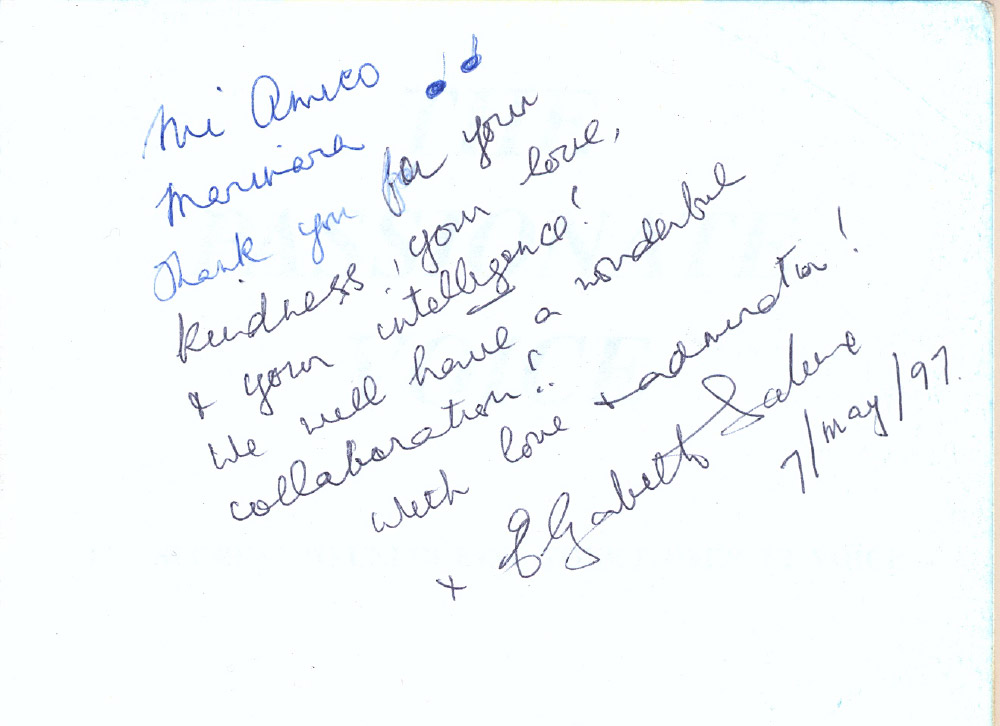 Mi Amico
Marinara
Thank you for your
kindness, your love,
& your intelligence!
We will have a wonderful
collaboration!!
With love + admiration!
+ Elizabeth Sabine
7/may/97.